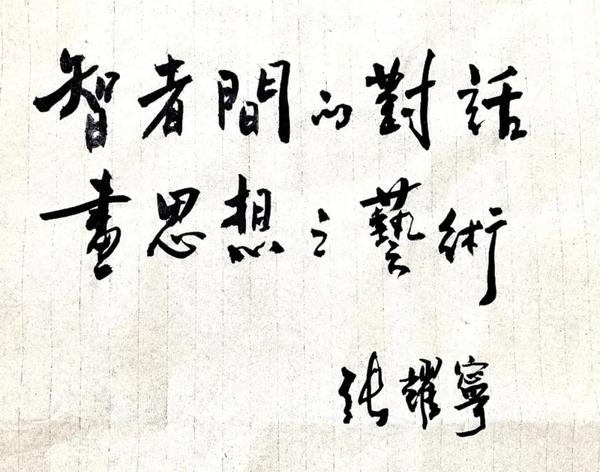 智者間的對話
畫思想之藝術
张耀寧